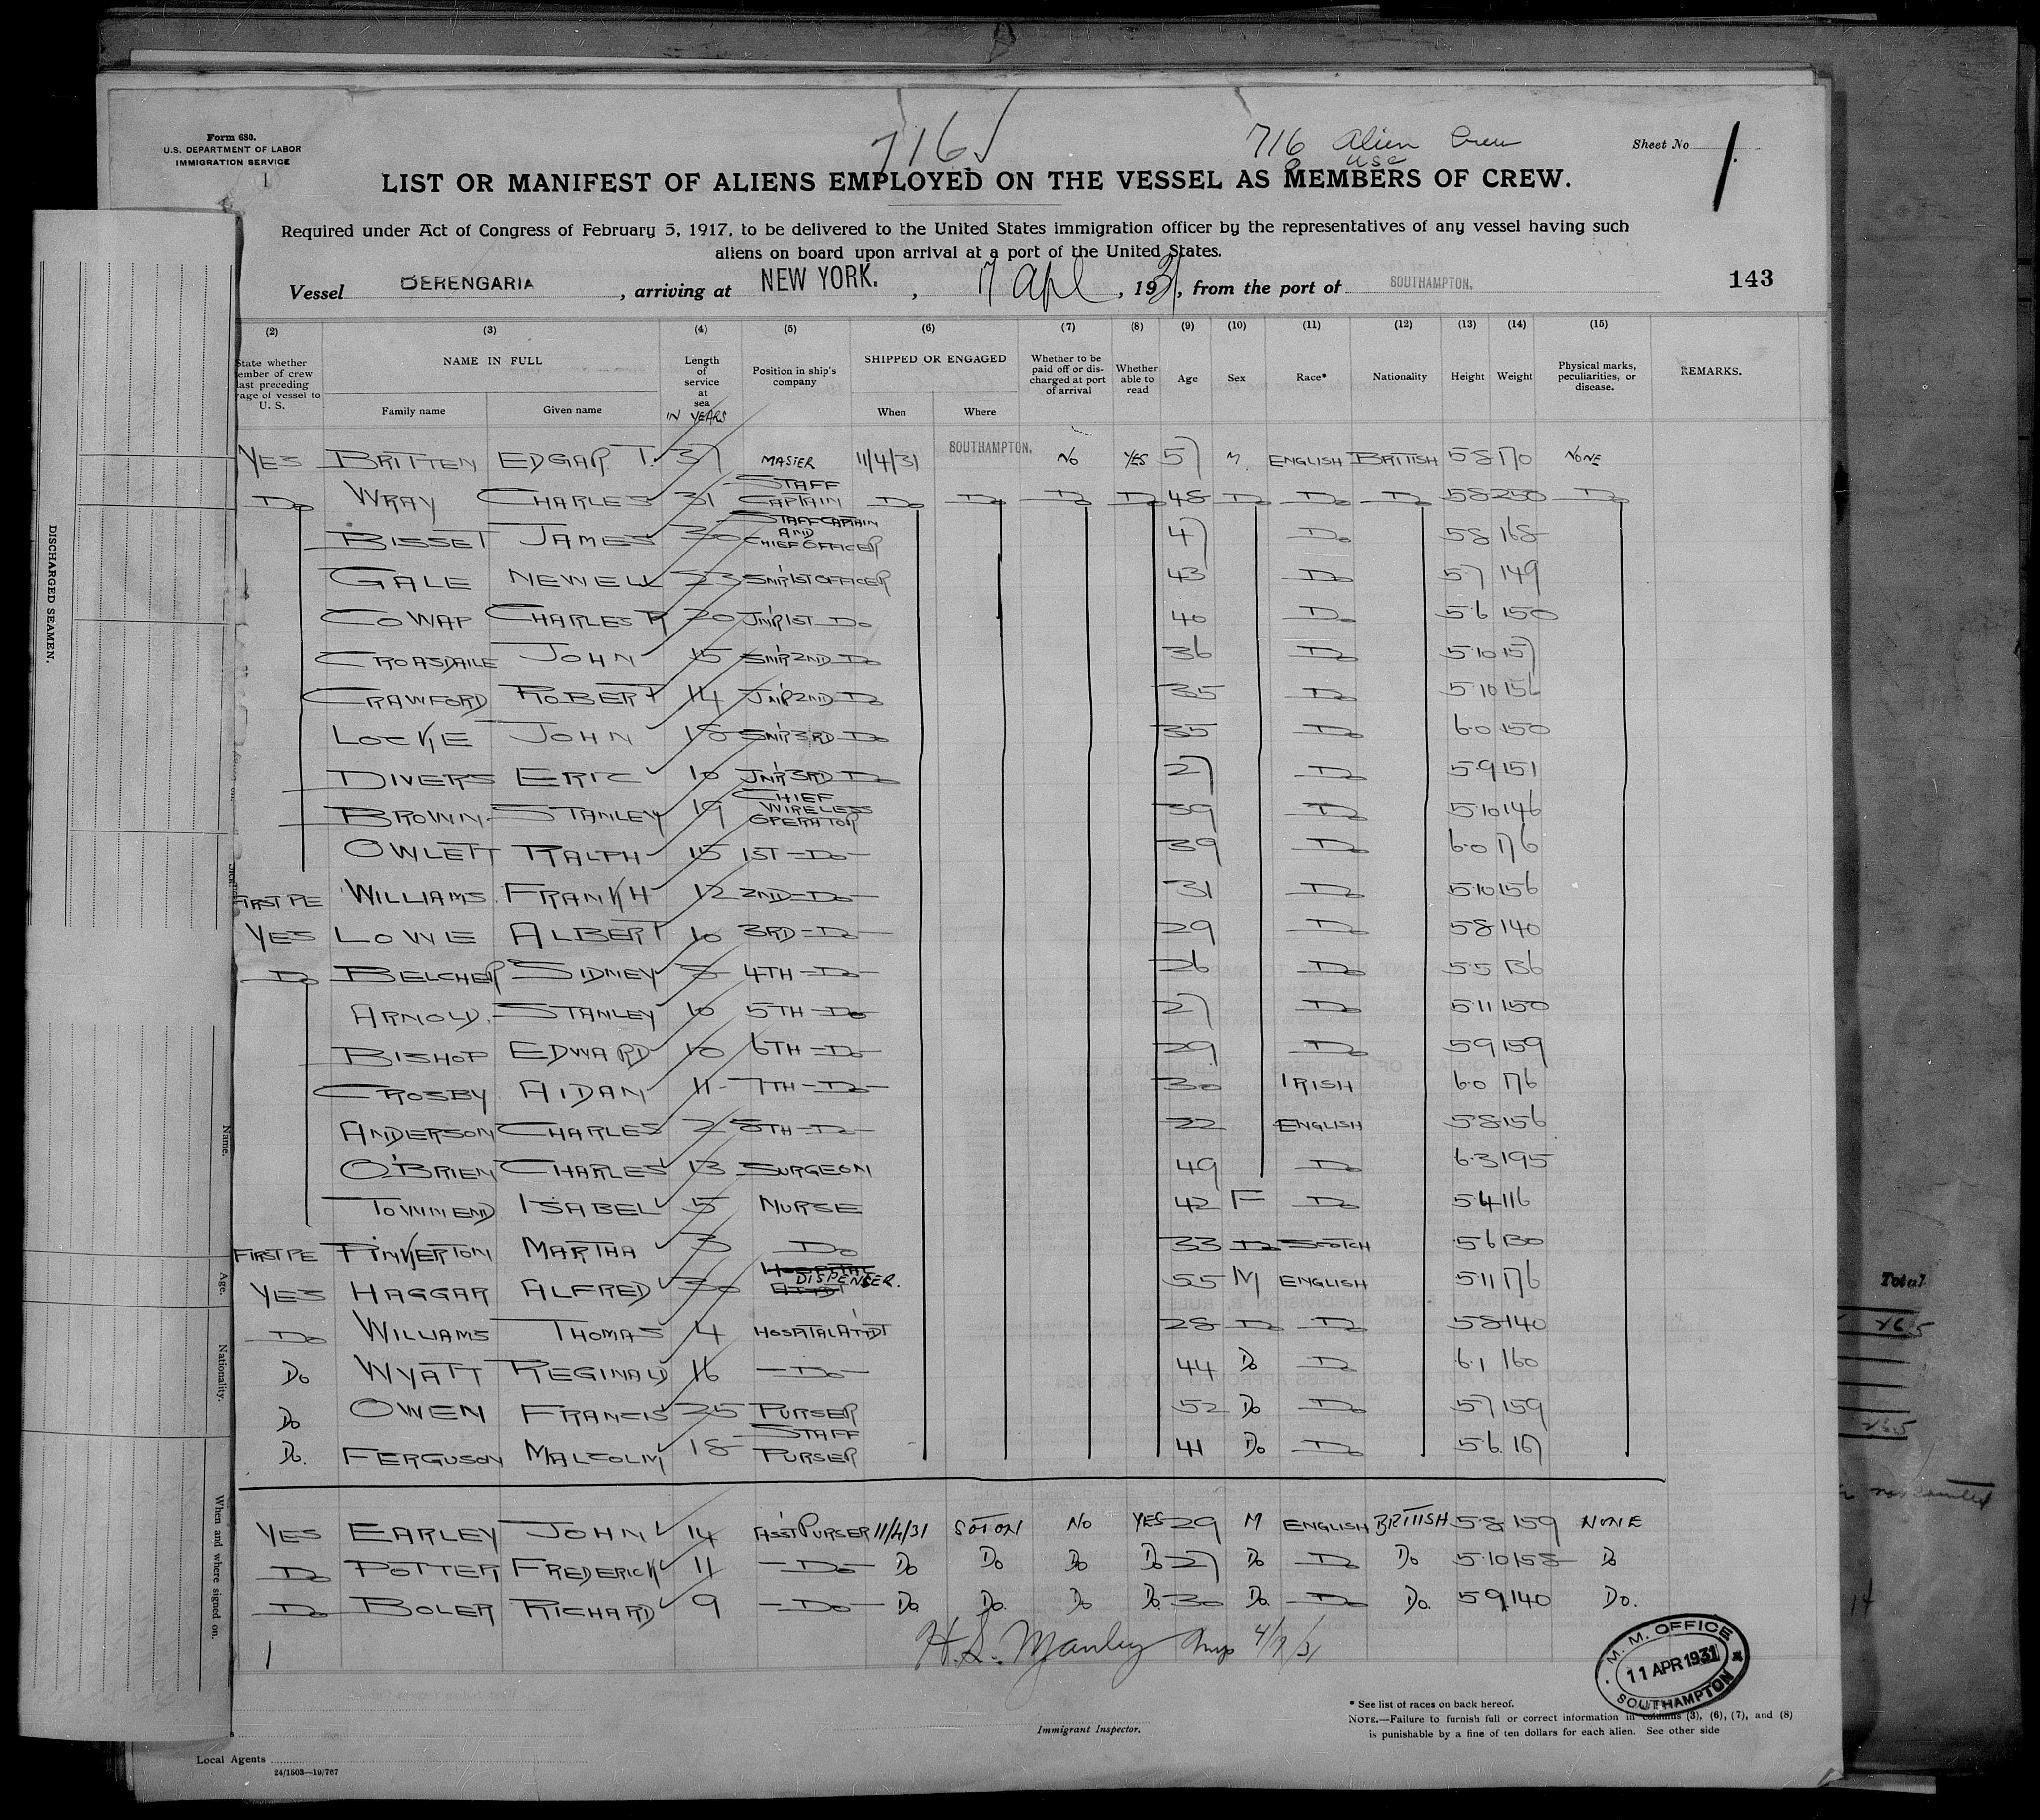 Form 680.
U.S. DEPARTMENT OF LABOR
IMMIGRATION SERVICE
1
716
716 Alien Crew
8 USC
Sheet No 1
LIST OR MANIFEST OF ALIENS EMPLOYED ON THE VESSEL AS MEMBERS OF CREW.
Required under Act of Congress of February 5, 1917, to be delivered to the United States immigration officer by the representatives of any vessel having such
aliens on board upon arrival at a port of the United States.
Vessel BERENGARIA, arriving at NEW YORK., 17 Apl, 1931, from the port of SOUTHAMPTON.
143
(2) (3) (4) (5) (6) (7) (8) (9) (10) (11) (12) (13) (14) (15)
State whether
ember of crew
last preceding
yage of vessel to
U. S.
NAME IN FULL
Family name Given name
Length
of
service
at
sea
IN YEARS
Position in ship's
company
SHIPPED OR ENGAGED
When Where
Whether to be
paid off or dis-
charged at port
of arrival
Whether
able to
read
Age Sex Race* Nationality Height Weight
Physical marks,
peculiarities, or
disease.
REMARKS.
YES BRITTEN EDGAR T. 37 MASTER 11/4/31 SOUTHAMPTON. NO YES 57 M. ENGLISH BRITISH 58 170 NONE
Do WRAY CHARLES 31 STAFF CAPTAIN Do Do Do Do 48 Do Do Do 58 230 Do
BISSET JAMES 30 STAFF CAPTAIN AND CHIEF OFFICER 47 Do 58 168
GALE NEWELL 23 SNR 1ST OFFICER 43 Do 5.7 149
COWAP CHARLES R 20 JNR 1ST Do 40 Do 5.6 150
CROASDAILE JOHN 15 SNR 2ND Do 36 Do 5.10 157
CRAWFORD ROBERT 14 JNR 2ND Do 35 Do 5.10 156
LOCKE JOHN 18 SNR 3RD Do 35 Do 6.0 150
DIVERS ERIC 10 JNR 3RD Do 27 Do 5.9 151
BROWN STANLEY 19 CHIEF WIRELESS OPERATOR 39 Do 5.10 146
OWLETT RALPH 15 1ST Do 39 Do 6.0 176
FIRST PE WILLIAMS FRANK H 12 2ND Do 31 Do 5.10 156
YES LOWE ALBERT 10 3RD Do 29 Do 58 140
Do BELCHER SIDNEY 8 4TH Do 26 Do 5.5 136
ARNOLD STANLEY 10 5TH Do 27 Do 5.11 150
BISHOP EDWARD 10 6TH Do 29 Do 59 159
CROSBY AIDAN 11 7TH Do 30 IRISH 6.0 176
ANDERSON CHARLES 2 8TH Do 22 ENGLISH 5.8 156
O'BRIEN CHARLES 13 SURGEON 49 Do 6.3 195
TOWNEND ISABEL 5 NURSE 42 F Do 54 116
FIRST PE PINKERTON MARTHA 3 Do 33 Do SCOTCH 5.6 130
YES HAGGAR ALFRED 30 DISPENSER. 55 M ENGLISH 5.11 176
Do WILLIAMS THOMAS 4 HOSPITAL ATTDT 28 Do Do 58 140
Do WYATT REGINALD 16 Do 44 Do Do 6.1 160
Do OWEN FRANCIS 25 PURSER 52 Do Do 57 159
Do. FERGUSON MALCOLM 18 STAFF PURSER 41 Do Do 5.6. 167
YES EARLEY JOHN 14 ASST PURSER 11/4/31 SOTON NO YES 29 M ENGLISH BRITISH 5.8 159 NONE
Do POTTER FREDERICK 11 Do Do Do Do Do 27 Do Do Do 5.10 158 Do
Do BOLER RICHARD 9 Do Do. Do. Do Do. 30 Do. Do Do. 59 140 Do.
1
H.S. Manley Insp 4/17/31
M. M. OFFICE
11 APR 1931
SOUTHAMPTON
Immigrant Inspector.
* See list of races on back hereof.
NOTE.—Failure to furnish full or correct information in columns (3), (6), (7), and (8)
is punishable by a fine of ten dollars for each alien. See other side
Local Agents
24/1503—19/767
DISCHARGED SEAMEN.
Name.
Age.
Nationality.
When and where signed on.
Total
265
265